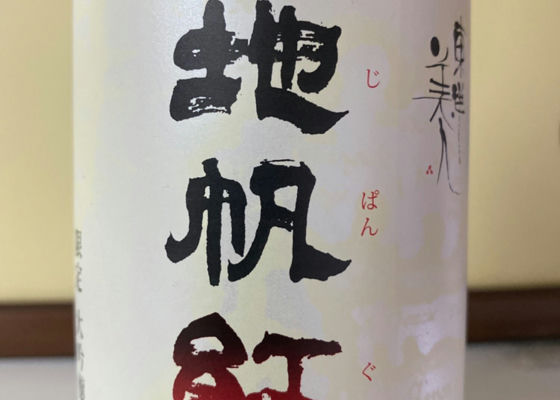 東洋美人
地帆紅
じぱんぐ